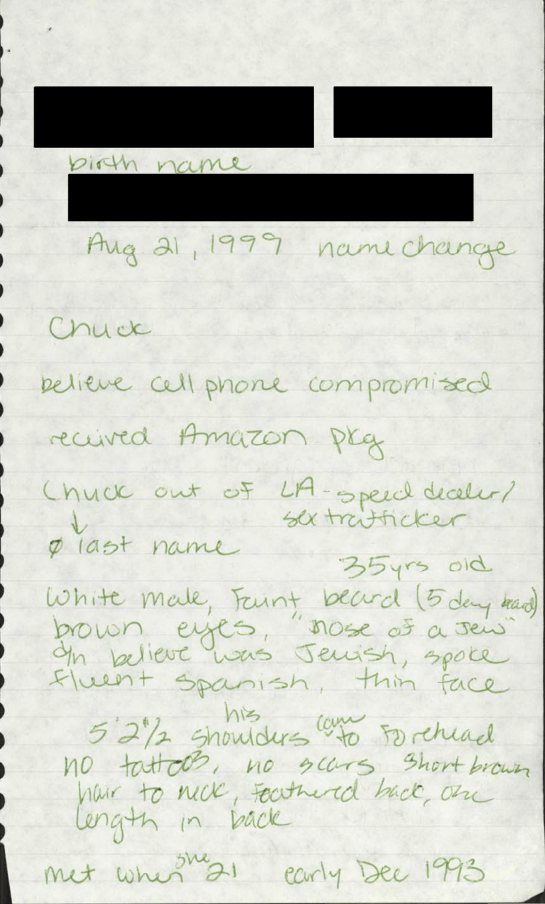 birth name
Aug 21, 1999 name change
Chuck
believe cell phone compromised
received Amazon pkg
Chuck out of LA - speed dealer/
sex trafficker
↓
ø last name
35yrs old
White male, Faint beard (5 day beard)
brown eyes, "nose of a Jew"
d/n believe was Jewish, spoke
fluent spanish, thin face
5'2"½ his shoulders came to forehead
no tattoos, no scars short brown
hair to neck, feathered back, one
length in back
met when she 21 early Dec 1993